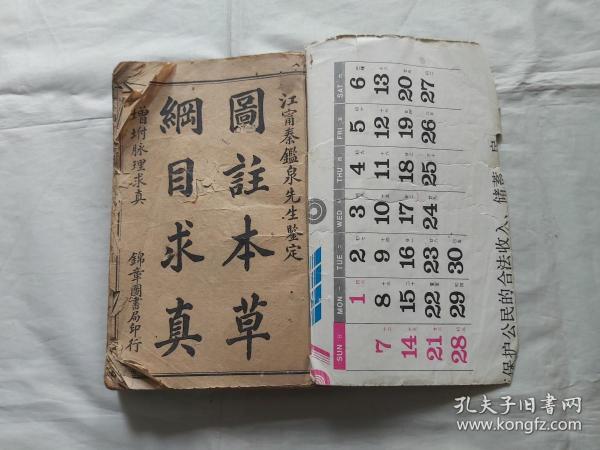 江甯秦鑑泉先生鑒定
圖註本草
綱目求真
增坿脉理求真
錦章圖書局印行
SUN 日 MON 一 TUE 二 WED 三 THU 四 FRI 五 SAT 六
1 2 3 4 5 6
7 8 9 10 11 12 13
14 15 16 17 18 19 20
21 22 23 24 25 26 27
28 29 30
保护公民的合法收入、储蓄
孔夫子旧书网
www.kongfz.com